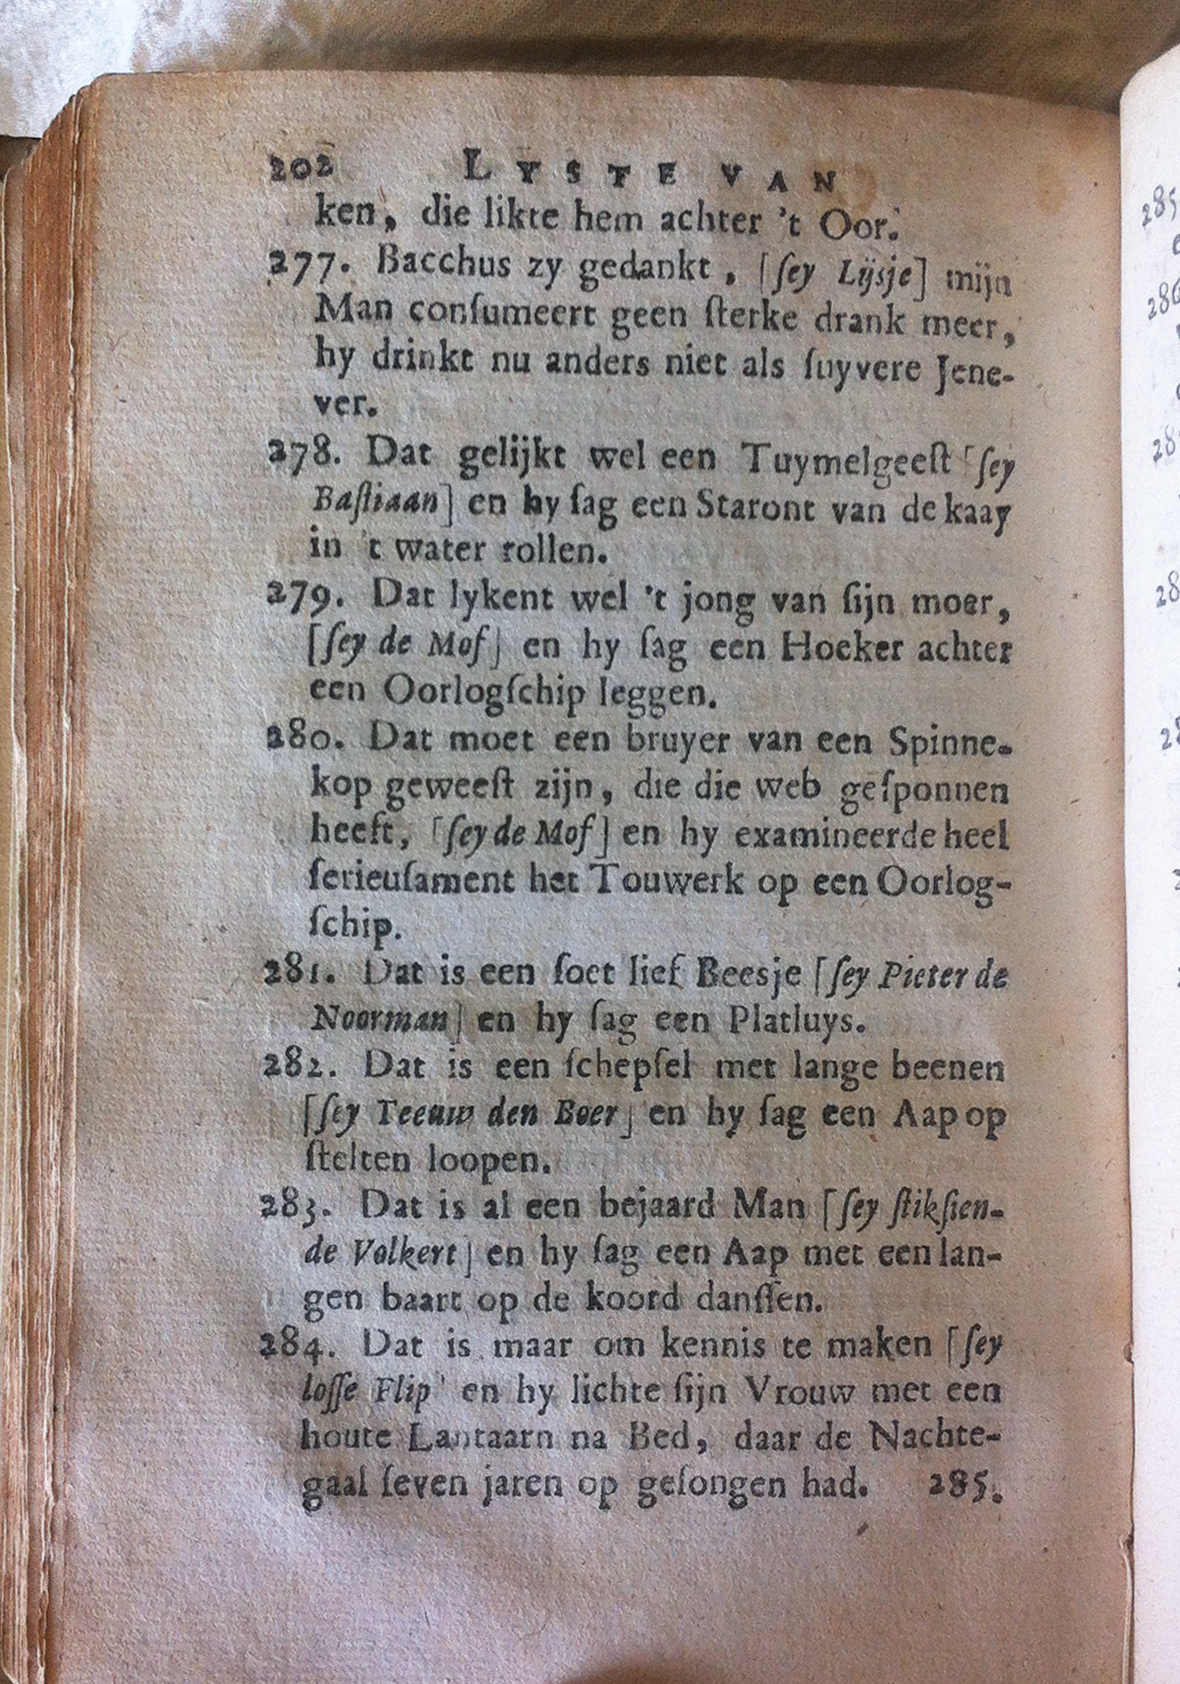 202 LYSTE VAN
ken, die likte hem achter 't Oor.
277. Bacchus zy gedankt, [ſey Lijsje] mijn
Man conſumeert geen ſterke drank meer,
hy drinkt nu anders niet als ſuyvere Jene-
ver.
278. Dat gelijkt wel een Tuymelgeeſt [ſey
Baſtiaan] en hy ſag een Staront van de kaay
in 't water rollen.
279. Dat lykent wel 't jong van ſijn moer,
[ſey de Mof] en hy ſag een Hoeker achter
een Oorlogſchip leggen.
280. Dat moet een bruyer van een Spinne-
kop geweeſt zijn, die die web geſponnen
heeft, [ſey de Mof] en hy examineerde heel
ſerieuſament het Touwerk op een Oorlog-
ſchip.
281. Dat is een ſoet lief Beesje [ſey Pieter de
Noorman] en hy ſag een Platluys.
282. Dat is een ſchepſel met lange beenen
[ſey Teeuw den Boer] en hy ſag een Aap op
ſtelten loopen.
283. Dat is al een bejaard Man [ſey ſtikſien-
de Volkert] en hy ſag een Aap met een lan-
gen baart op de koord danſſen.
284. Dat is maar om kennis te maken [ſey
loſſe Flip] en hy lichte ſijn Vrouw met een
houte Lantaarn na Bed, daar de Nachte-
gaal ſeven jaren op geſongen had. 285.